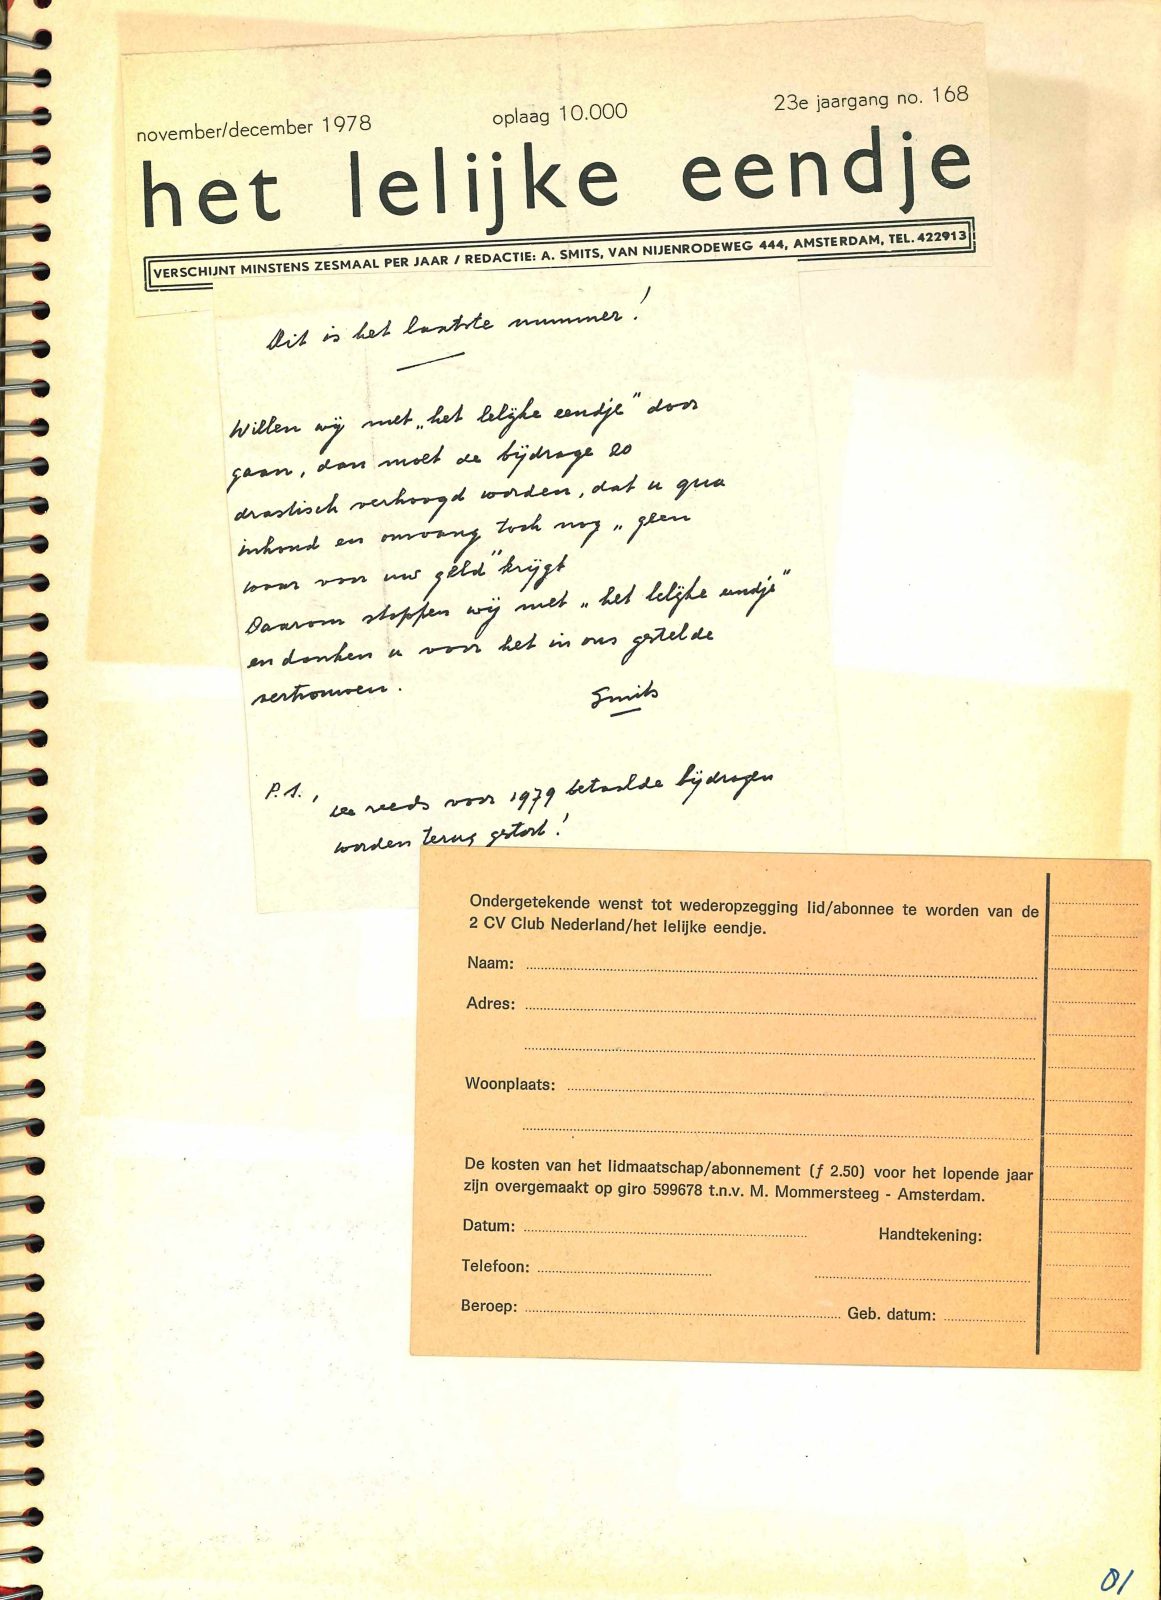 november/december 1978 oplaag 10.000 23e jaargang no. 168
het lelijke eendje
VERSCHIJNT MINSTENS ZESMAAL PER JAAR / REDACTIE: A. SMITS, VAN NIJENRODEWEG 444, AMSTERDAM, TEL. 422913
Dit is het laatste nummer!
Willen wij met „het lelijke eendje" door
gaan, dan moet de bijdrage zo
drastisch verhoogd worden, dat u qua
inhoud en omvang toch nog „geen
waar voor uw geld" krijgt
Daarom stoppen wij met „het lelijke eendje"
en danken u voor het in ons gestelde
vertrouwen.
Smits
P.S., de reeds voor 1979 betaalde bijdragen
worden terug gestort!
Ondergetekende wenst tot wederopzegging lid/abonnee te worden van de
2 CV Club Nederland/het lelijke eendje.
Naam:
Adres:
Woonplaats:
De kosten van het lidmaatschap/abonnement (ƒ 2.50) voor het lopende jaar
zijn overgemaakt op giro 599678 t.n.v. M. Mommersteeg - Amsterdam.
Datum: Handtekening:
Telefoon:
Beroep: Geb. datum:
81